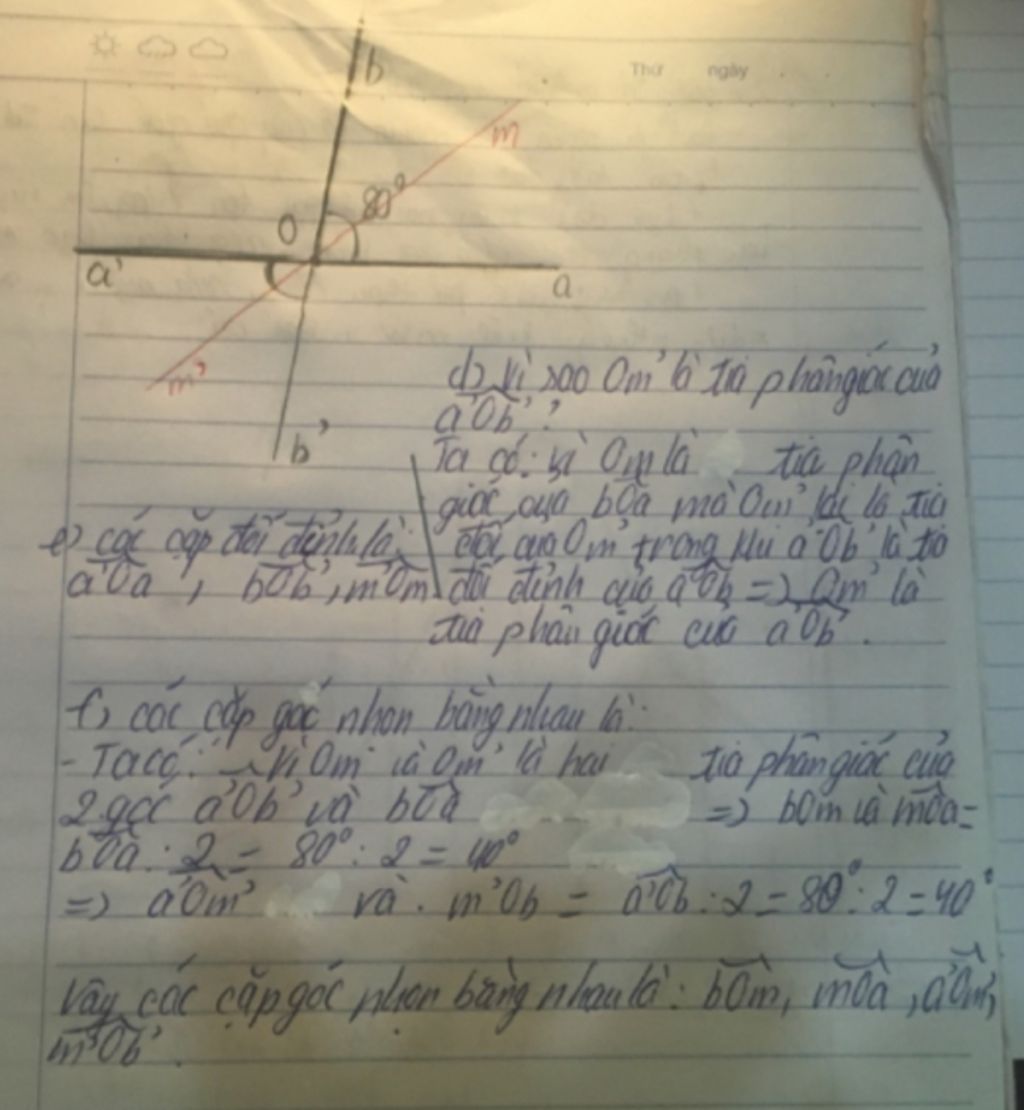 Thứ ngày
b
m
O
80°
a'
a
m'
b'
d) Vì sao Om' là tia phân giác của
a'Ob'?
Ta có: vì Om là tia phân
giác của bOa mà Om' lại là tia
đối của Om trong khi a'Ob' là tia
đối đỉnh của aOb => Om' là
tia phân giác của a'Ob'.
e) các cặp đối đỉnh là:
a'Oa, bOb', m'Om
f) các cặp góc nhọn bằng nhau là:
- Ta có: Vì Om và Om' là hai tia phân giác của
2 góc a'Ob' và bOa => bOm và mOa =
bOa : 2 = 80° : 2 = 40°
=> a'Om' và m'Ob = a'Ob : 2 = 80° : 2 = 40°
Vậy các cặp góc nhọn bằng nhau là: bOm, mOa, a'Om',
m'Ob'.